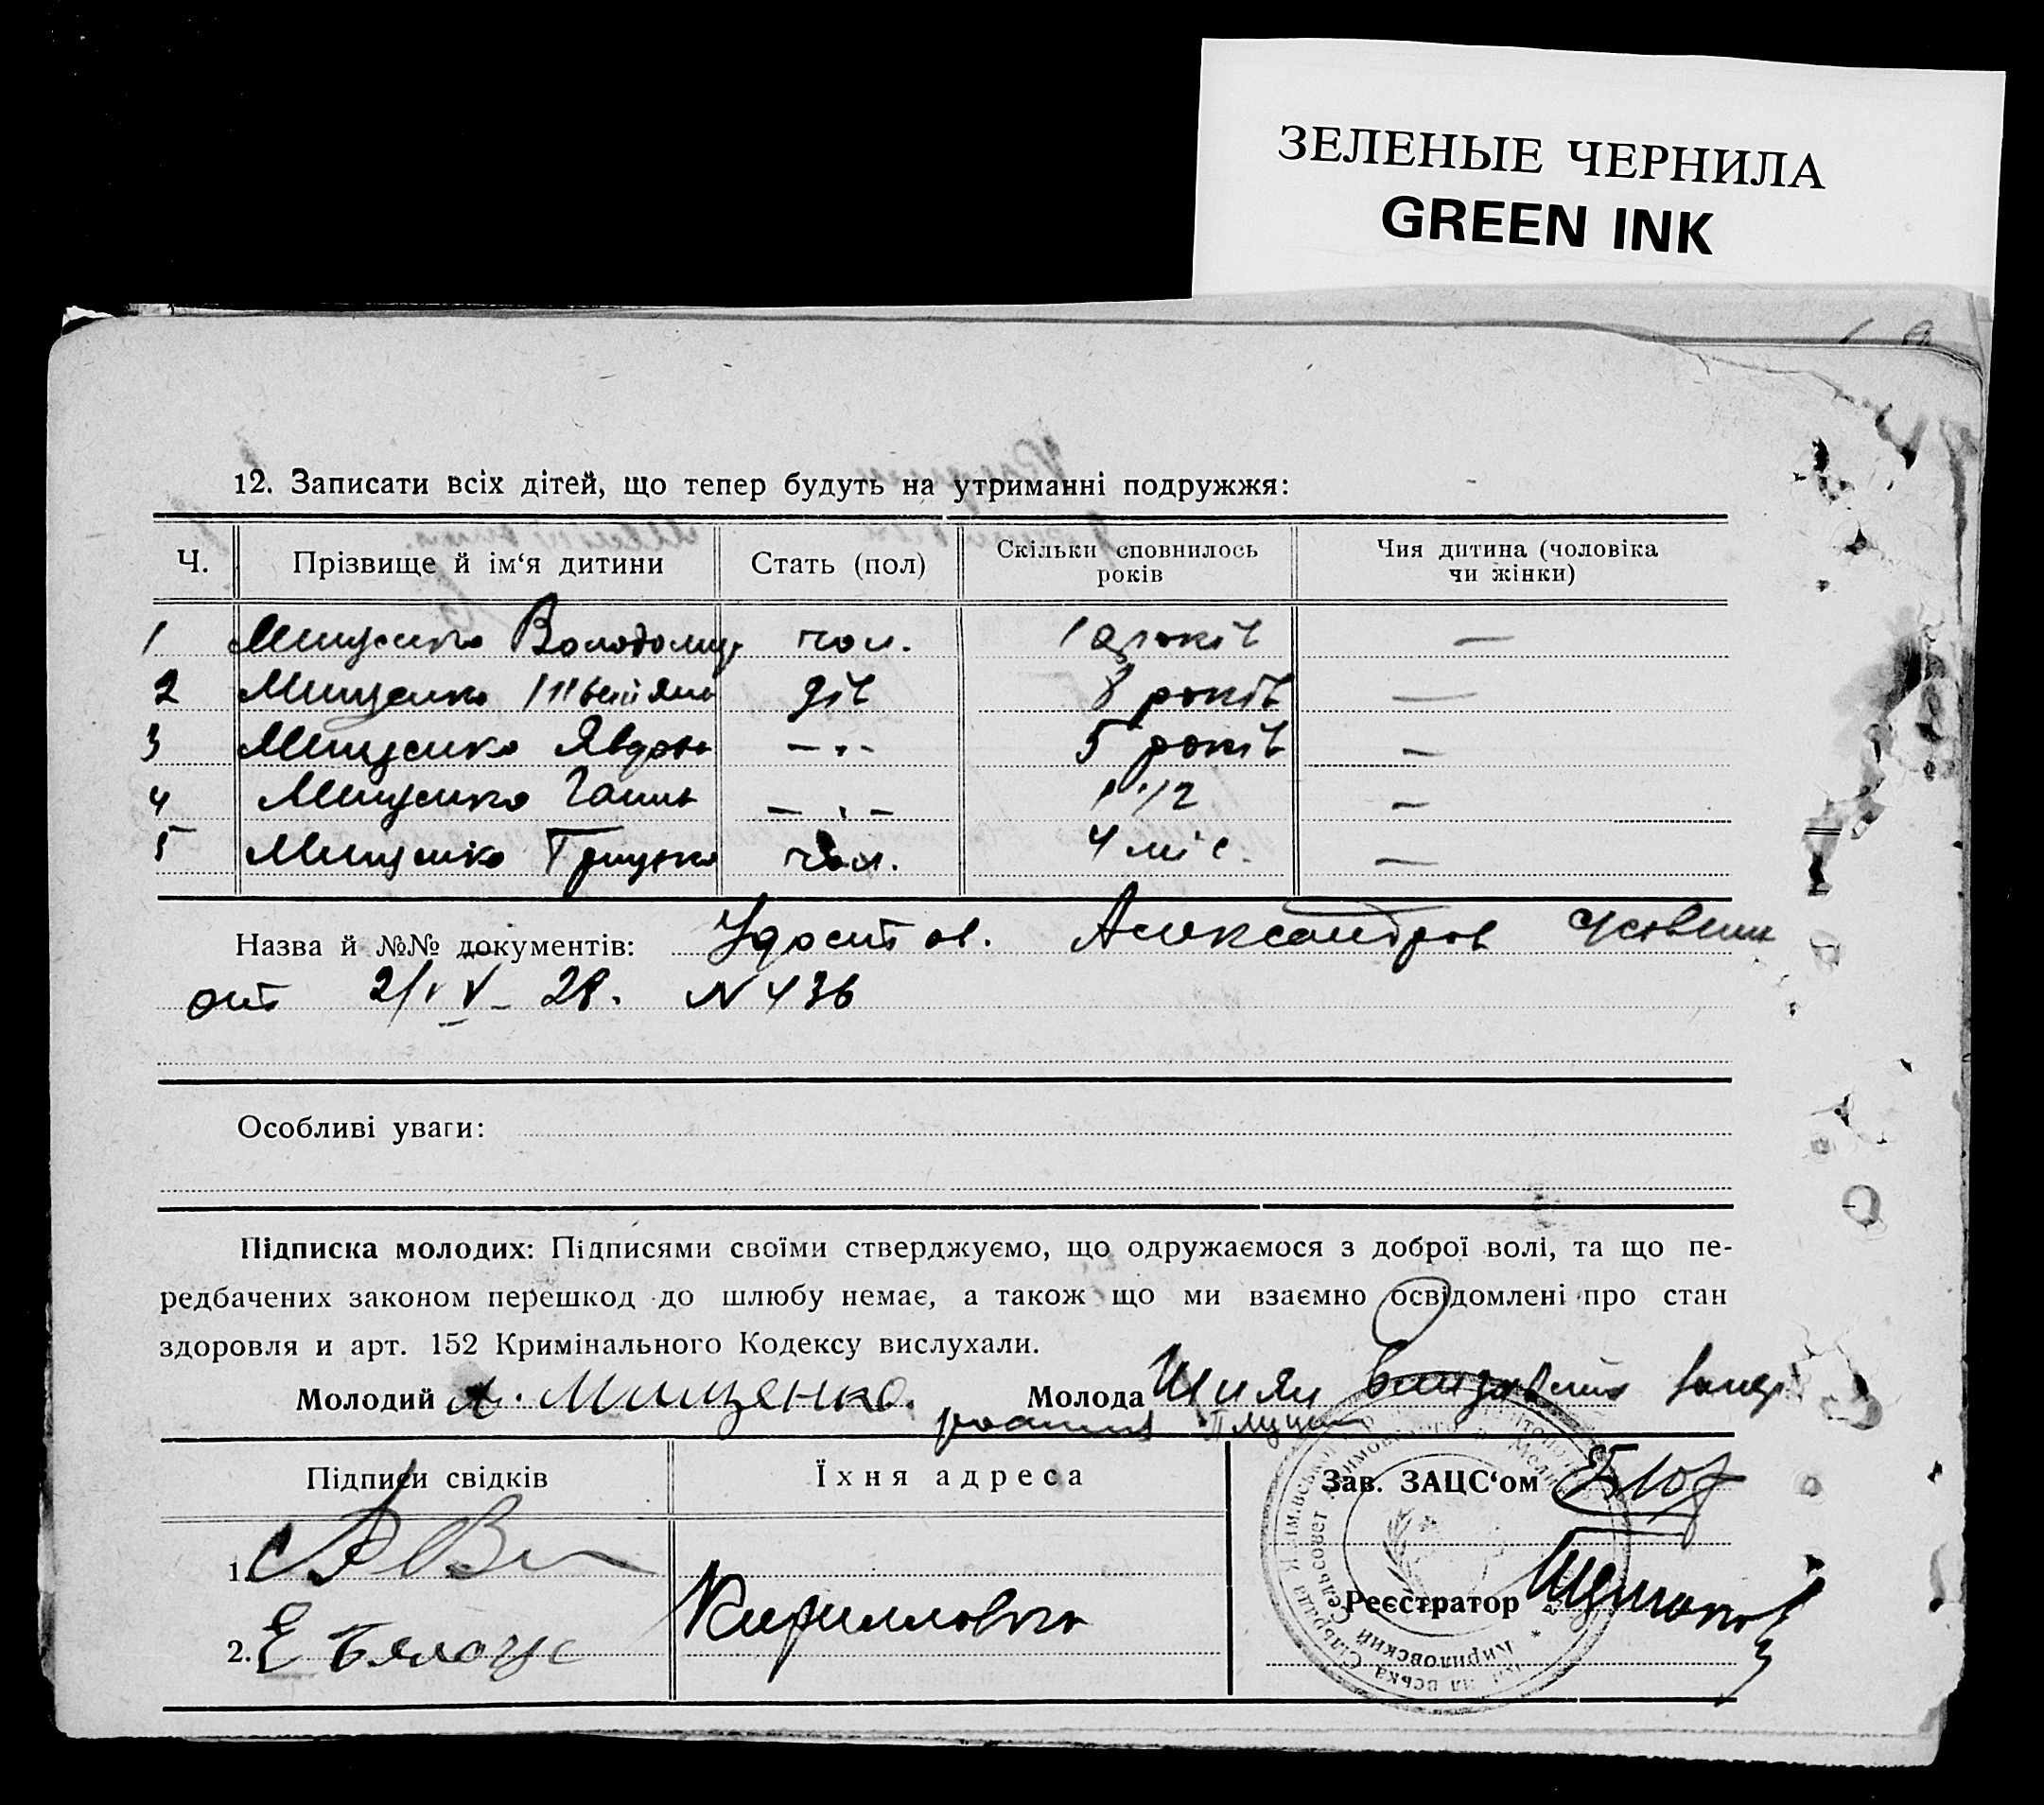 ЗЕЛЕНЫЕ ЧЕРНИЛА
GREEN INK
12. Записати всіх дітей, що тепер будуть на утриманні подружжя:
Ч. Прізвище й ім‘я дитини Стать (пол) Скільки сповнилось років Чия дитина (чоловіка чи жінки)
1 Мищенко Володомир чол. років —
2 Мищенко дів 8 років —
3 Мищенко Явдоха —·— 5 років —
4 Мищенко Ганна —·— 1 1/2 —
5 Мищенко Грицько чол. 4 міс. —
Назва й №№ документів: Удост ов. Александров
от 28. N 436
Особливі уваги:
Підписка молодих: Підписями своїми стверджуємо, що одружаємося з доброї волі, та що пе-
редбачених законом перешкод до шлюбу немає, а також що ми взаємно освідомлені про стан
здоровля и арт. 152 Кримінального Кодексу вислухали.
Молодий А. Мищенко. Молода
Підписи свідків Їхня адреса Зав. ЗАЦС‘ом
1.
Кирилловка
Реєстратор
2. Е
Кириловский Сельсовет